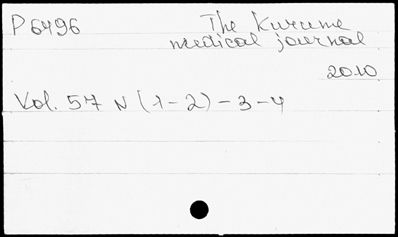 P 6496 The Kurume
medical journal
2010
Vol. 57 N (1-2) - 3 - 4